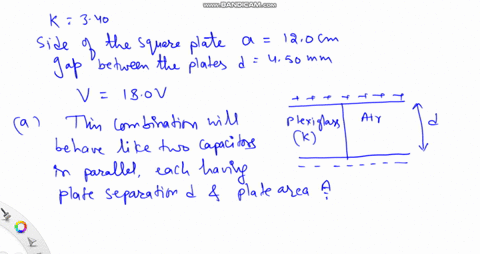 WWW.BANDICAM.COM
K = 3.40
Side of the square plate a = 12.0 cm
gap between the plates d = 4.50 mm
V = 18.0V
(a) This combination will
behave like two capacitors
in parallel, each having
plate separation d & plate area A
+ + + + + + +
plexiglass
(K)
Air
d
- - - - - - -